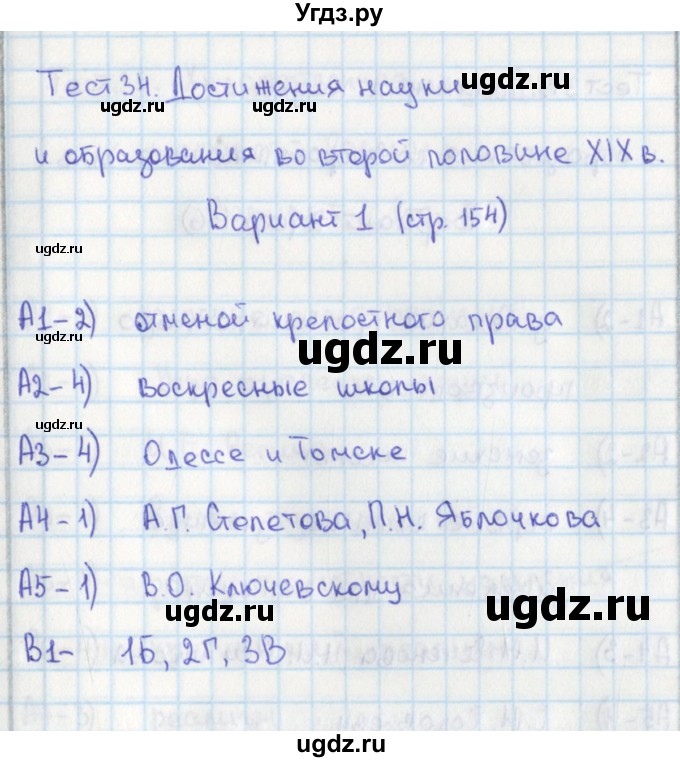 Угдз.ру
Тест 34. Достижения науки
и образования во второй половине XIX в.
Вариант 1 (стр. 154)
А1-2) отменой крепостного права
А2-4) воскресные школы
А3-4) Одессе и Томске
А4-1) А.Г. Столетова, П.Н. Яблочкова
А5-1) В.О. Ключевскому
В1- 1Б, 2Г, 3В
ugdz.ru
ugdz.ru
ugdz.ru
ugdz.ru
ugdz.ru
ugdz.ru
ugdz.ru
ugdz.ru
ugdz.ru
ugdz.ru
ugdz.ru
ugdz.ru